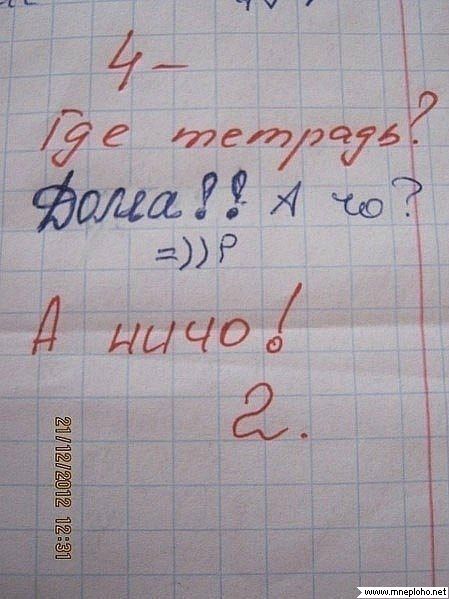 4-
Где тетрадь?
Дома!! А чо?
=))P
А ничо!
2.
21/12/2012 12:31
www.mneploho.net